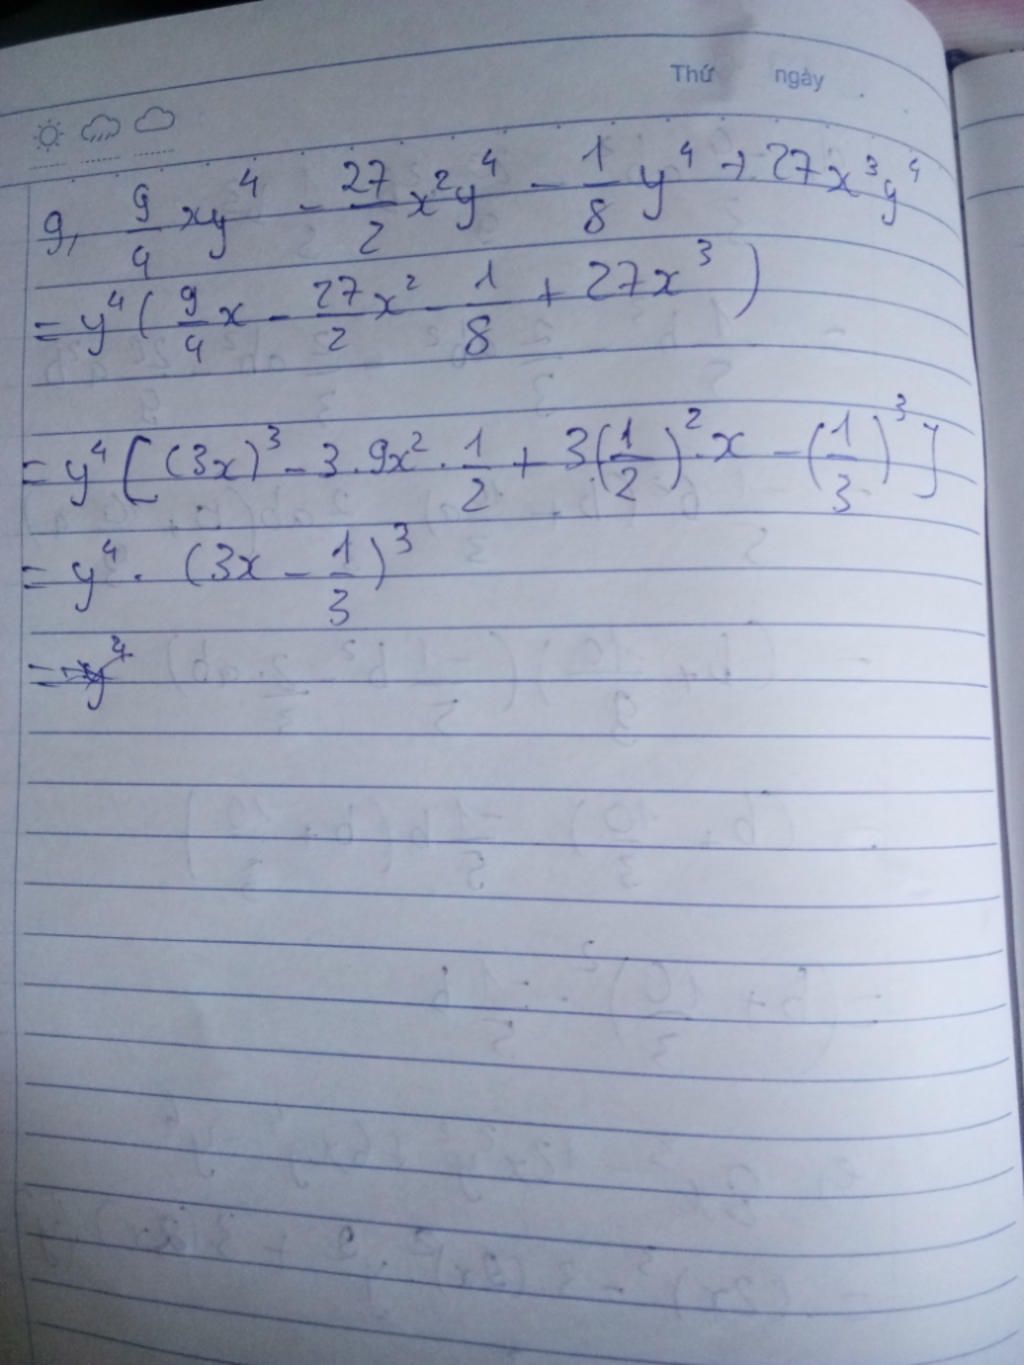 Thứ ngày
g, 9/4 xy^4 - 27/2 x^2y^4 - 1/8 y^4 + 27x^3y^4
= y^4 ( 9/4 x - 27/2 x^2 - 1/8 + 27x^3 )
= y^4 [ (3x)^3 - 3.9x^2 . 1/2 + 3.(1/2)^2 . x - (1/3)^3 ]
= y^4 . (3x - 1/3)^3